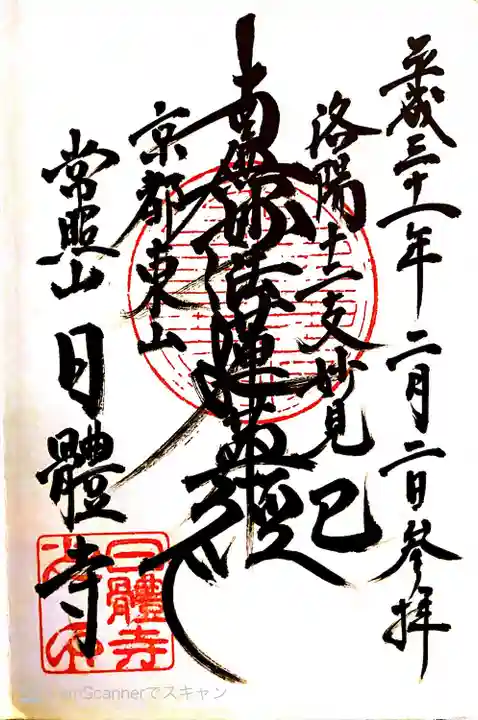 平成三十一年二月二日参拝
洛陽十二支妙見 巳
南無妙法蓮華経
京都東山
常照山 日體寺
日體寺
CamScannerでスキャン